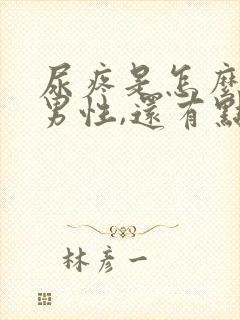 尿疼是怎麼
男性,還有點
林彥一